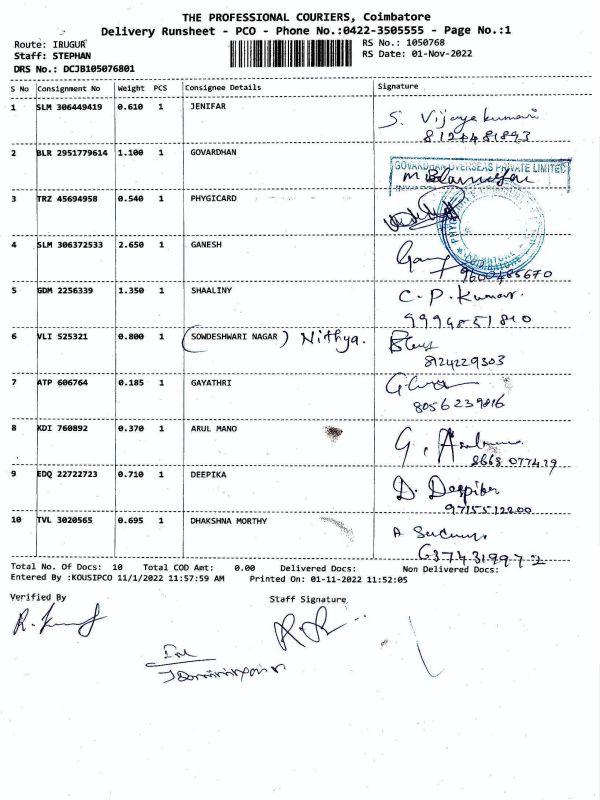 THE PROFESSIONAL COURIERS, Coimbatore
Delivery Runsheet - PCO - Phone No.:0422-3505555 - Page No.:1
Route: IRUGUR RS No.: 1050768
Staff: STEPHAN RS Date: 01-Nov-2022
DRS No.: DCJB105076801
S No Consignment No Weight PCS Consignee Details Signature
1 SLM 306449419 0.610 1 JENIFAR S. Vijayakumari
8124481893
2 BLR 2951779614 1.100 1 GOVARDHAN GOVARDHAN OVERSEAS PRIVATE LIMITED
3 TRZ 45694958 0.540 1 PHYGICARD
4 SLM 306372533 2.650 1 GANESH
9600485670
5 GDM 2256339 1.350 1 SHAALINY C.P. Kumar.
6 VLI 525321 0.800 1 (SOWDESHWARI NAGAR) Nithya.
8124229303
7 ATP 606764 0.185 1 GAYATHRI
8056239816
8 KDI 760892 0.370 1 ARUL MANO
9 EDQ 22722723 0.710 1 DEEPIKA D. Deepika
9715512200
10 TVL 3020565 0.695 1 DHAKSHNA MORTHY
6374319972
Total No. Of Docs: 10 Total COD Amt: 0.00 Delivered Docs: Non Delivered Docs:
Entered By :KOUSIPCO 11/1/2022 11:57:59 AM Printed On: 01-11-2022 11:52:05
Verified By Staff Signature